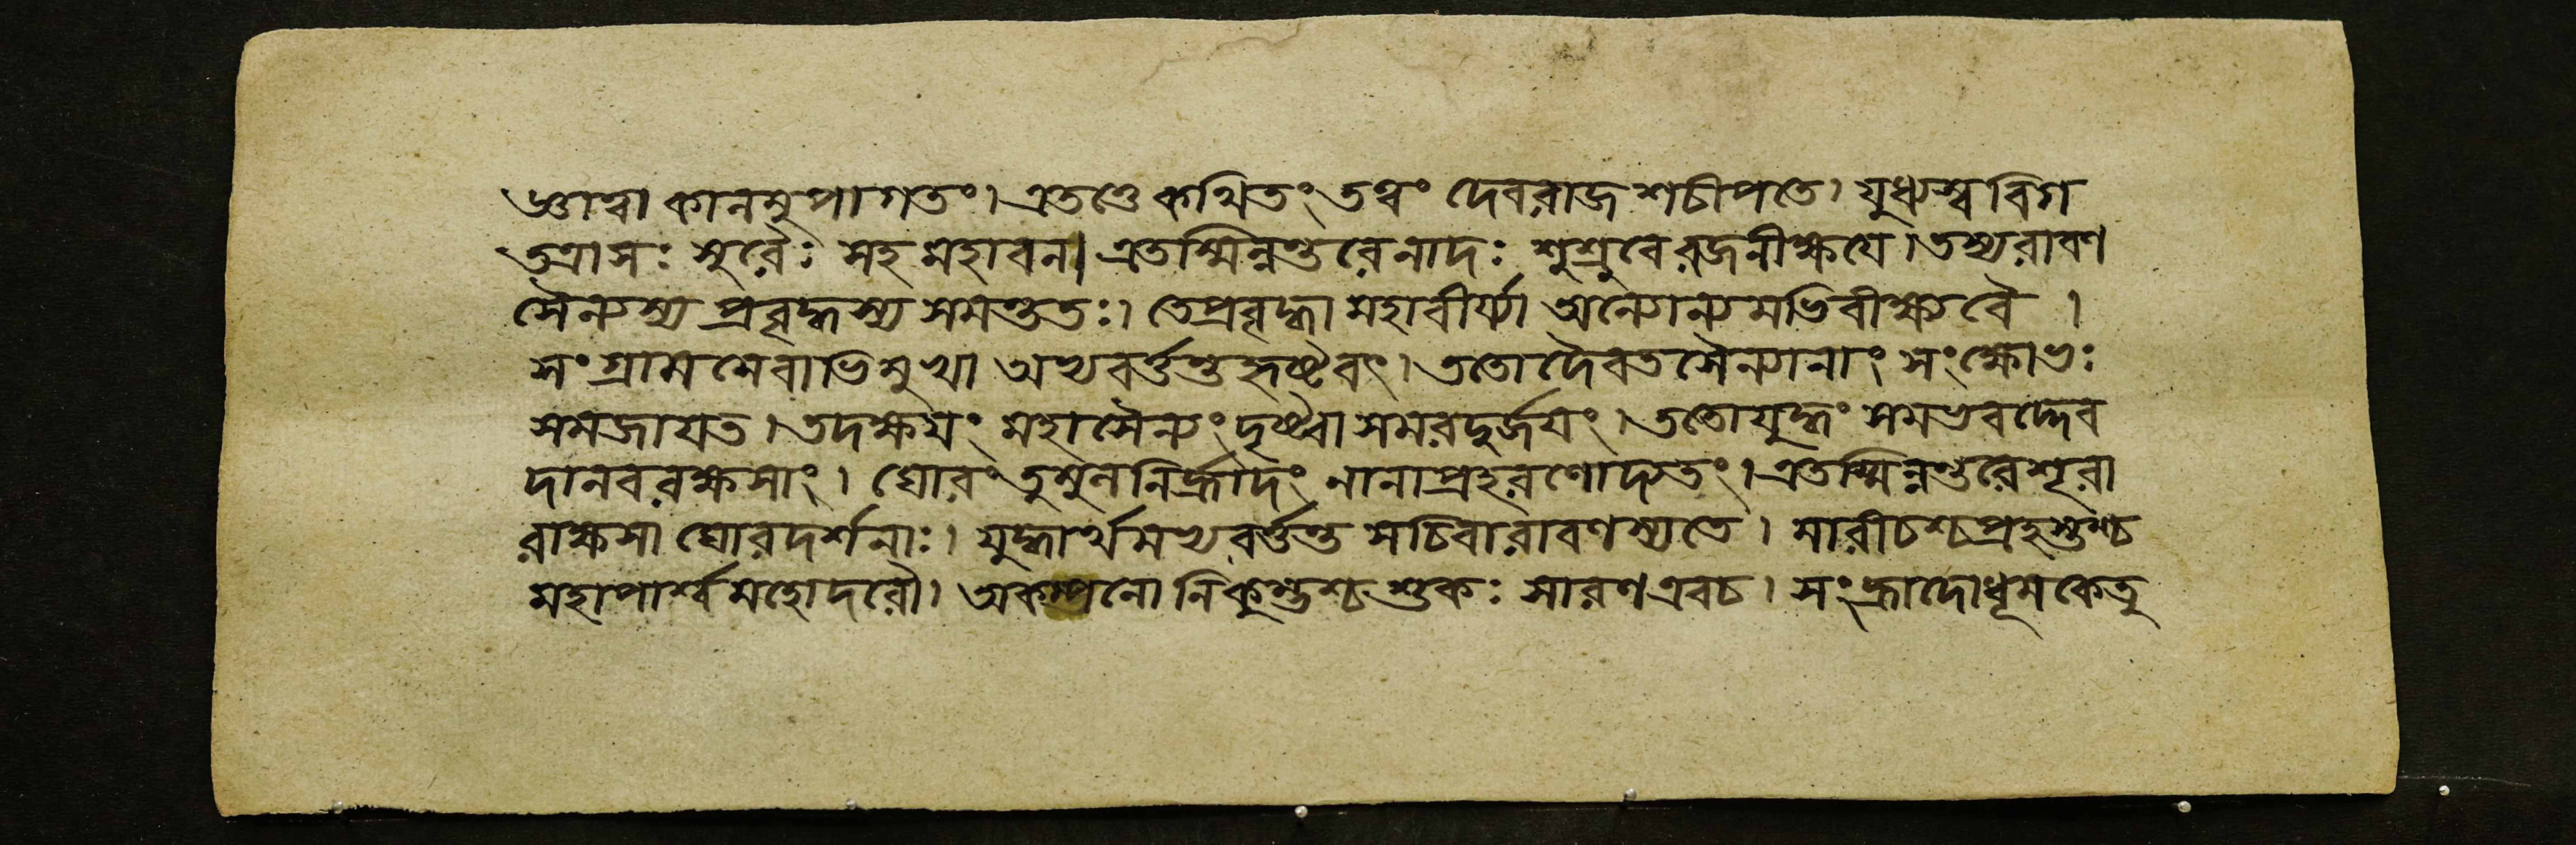 জ্ঞাত্বা কালমুপাগতং। এতত্তে কথিতং তত্বং দেবরাজ শচীপতে। যুধ্যস্ব বিগ
তত্রাসঃ সুরৈঃ সহ মহাবল। এতস্মিন্নন্তরে নাদঃ শুশ্রুবে রজনীক্ষয়ে। তস্য রাবণ
সৈন্যস্য প্রবৃদ্ধস্য সমন্ততঃ। তে প্রবৃদ্ধা মহাবীর্যা অন্যোন্যমভিবীক্ষ্য বৈ ।
সংগ্রাম মেবাভিমুখা অভ্যবর্ত্তন্ত হৃষ্টবৎ। ততো দৈবত সৈন্যানাং সংক্ষোভঃ
সমজায়ত। তদক্ষয়ং মহাসৈন্যং দৃষ্ট্বা সমরদুর্জয়ং। ততো যুদ্ধং সমভবদ্দেব
দানবরক্ষসাং। ঘোরং তুমুলনির্হ্রাদং নানাপ্রহরণোদ্যতং। এতস্মিন্নন্তরে শূরা
রাক্ষসা ঘোরদর্শনাঃ। যুদ্ধার্থমভ্যবর্ত্তন্ত সচিবা রাবণস্য তে। মারীচশ্চ প্রহস্তশ্চ
মহাপার্শ্ব মহোদরৌ। অকম্পনো নিকুম্ভশ্চ শুকঃ সারণ এব চ। সংহ্রাদো ধূমকেতু